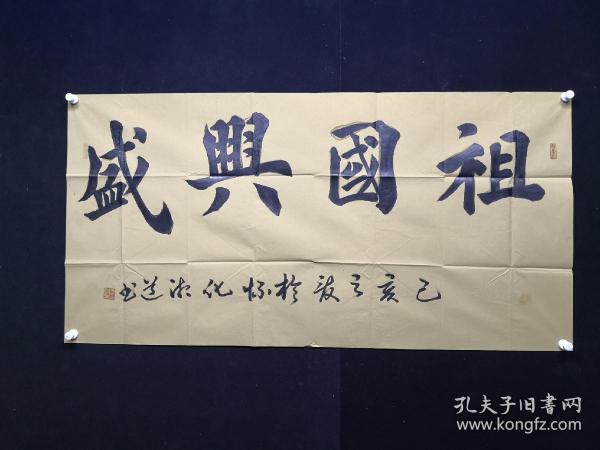 祖國興盛
己亥之夏於怀化湘道书
孔夫子旧書网
www.kongfz.com